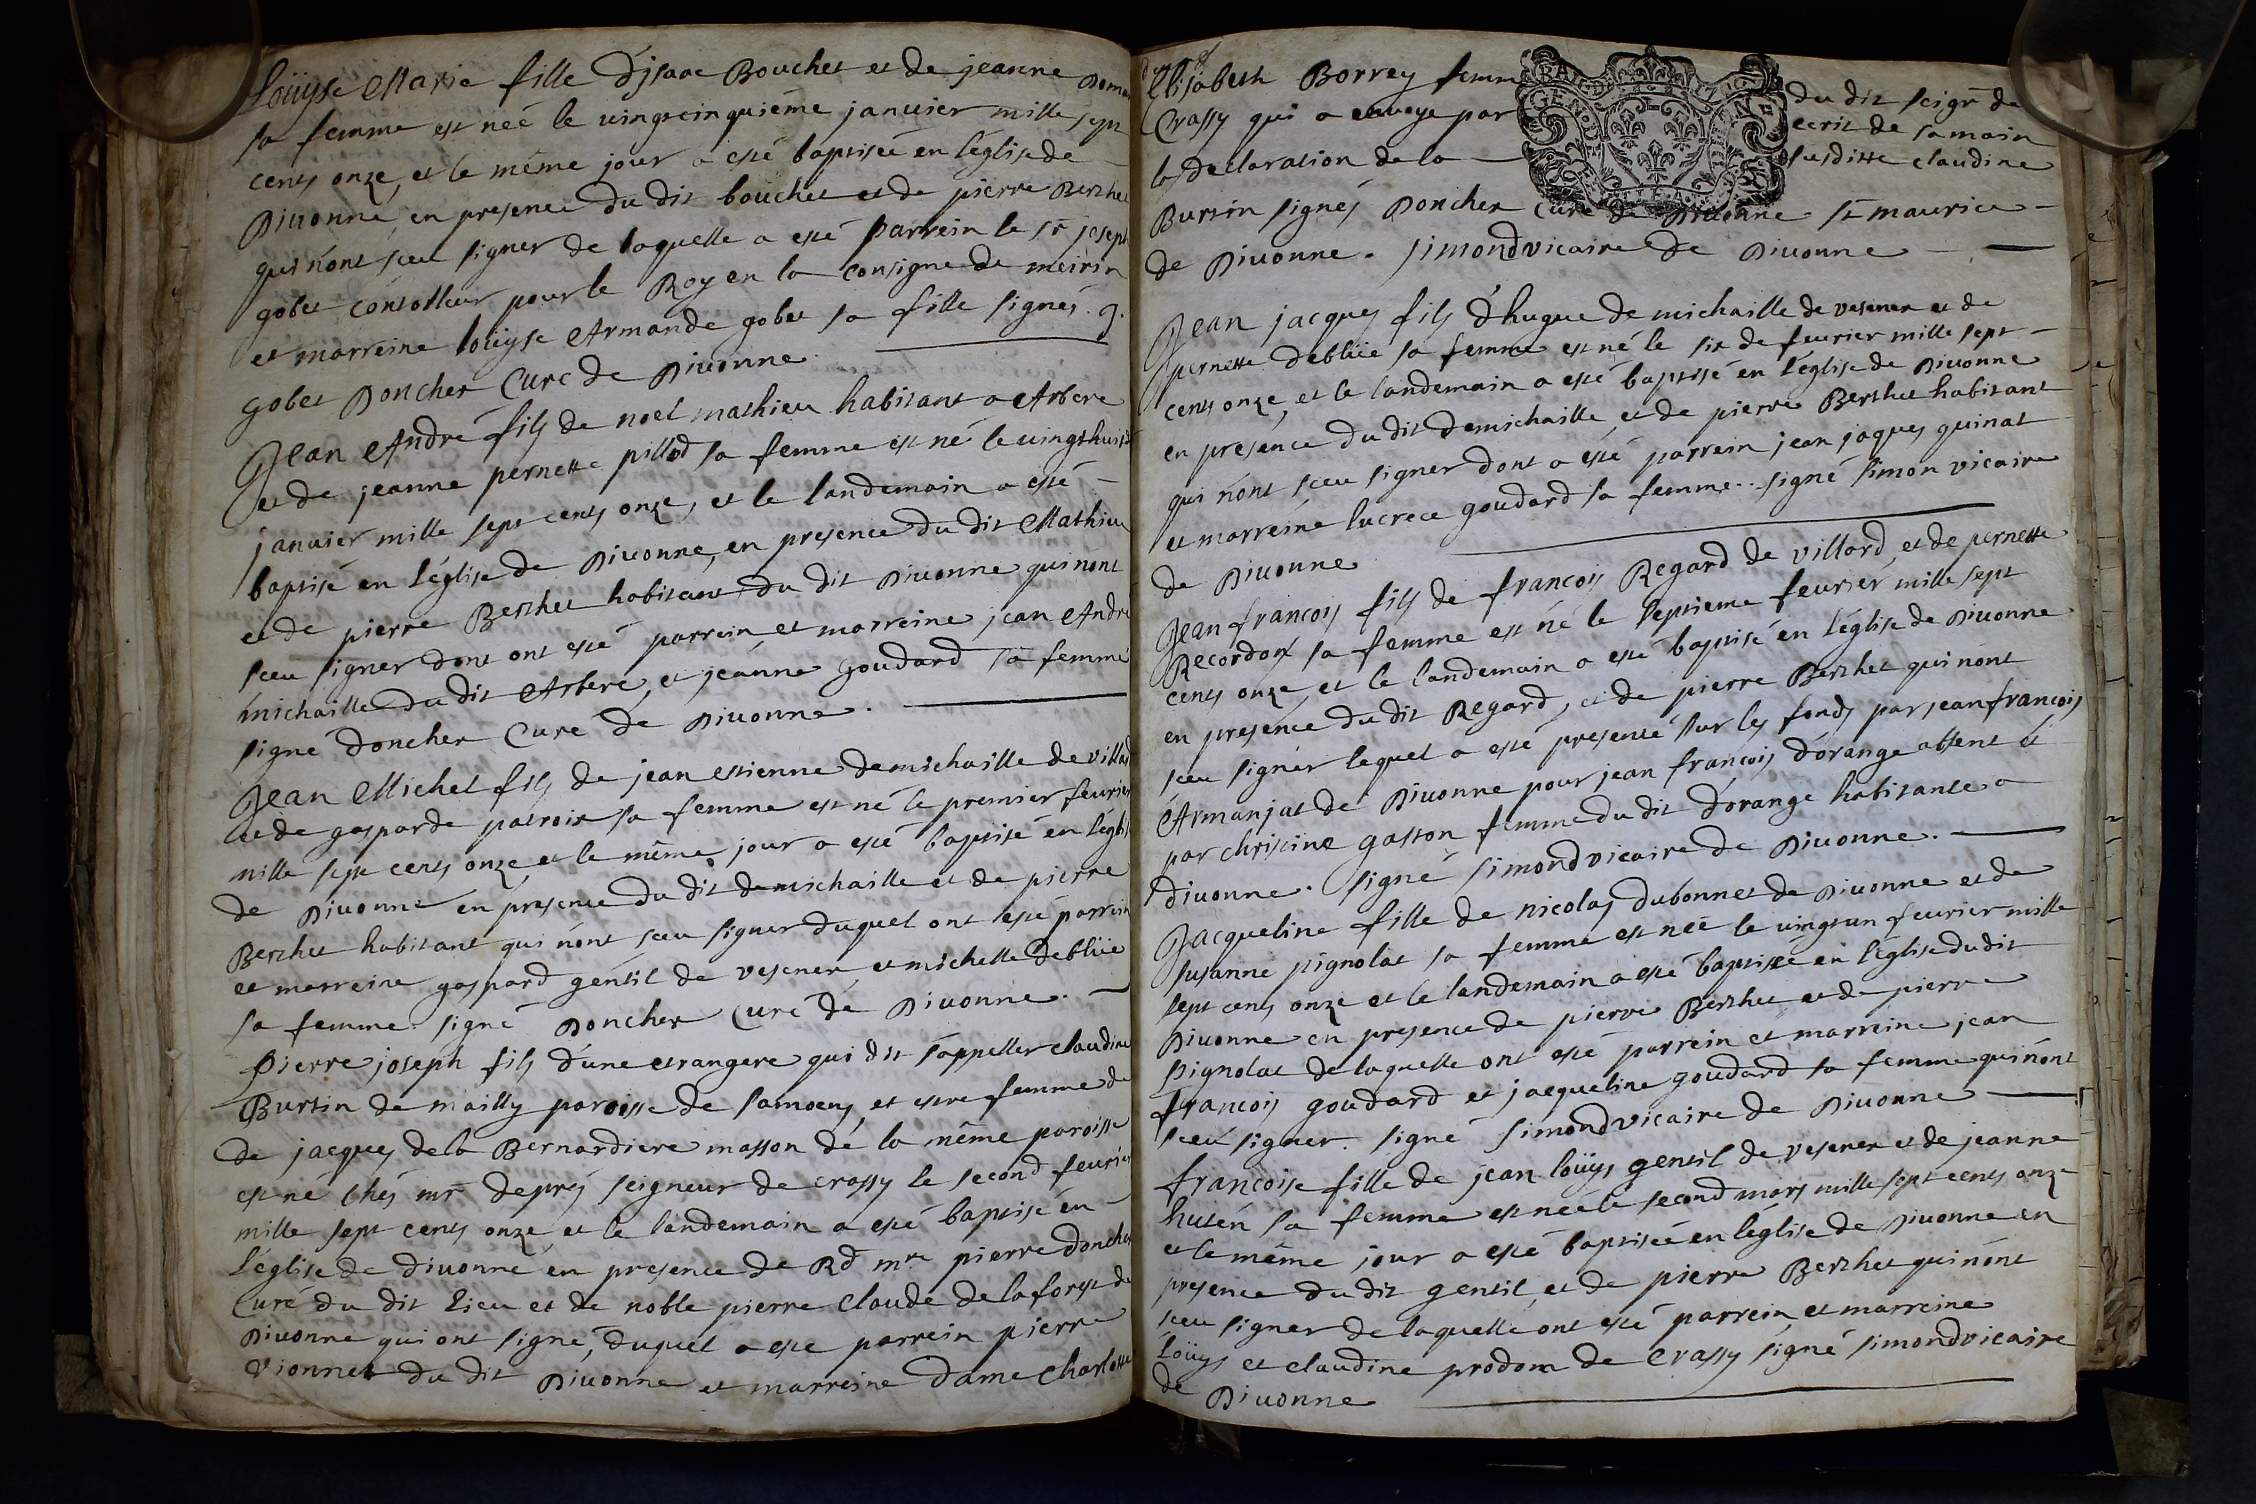 Loüyse Marie fille d'jsaac Bouchet et de jeanne
sa femme est neé le vingtcinquiéme januier mille sept
cents onze, et le même jour a esté baptisée en l'église de
Diuonne, en presence du dit bouchet et de pierre Berthet
qui n'ont sceu signer de laquelle a esté parrein le sr joseph
gobet controlleur pour le Roy en la Consigne de meirin
et marreine loüyse Armande gobet sa fille signés. J.
gobet Doncher Curé de Diuonne.
Jean André fils de noel mathieu habitant a Arbere
et de jeanne pernette pillod sa femme est né le vingthuit
januier mille sept cents onze, et le landemain a esté
baptisé en l'église de Diuonne, en presence du dit Mathieu
et de pierre Berthet habitant du dit Diuonne qui n'ont
sceu signer dont ont esté parrein et marreine jean André
michaille du dit Arbere, et jeanne goudard sa femme
signé Doncher Curé de Diuonne.
Jean Michel fils de jean estienne demichaille de villard
et de gasparde patroix sa femme est né le premier feurier
mille sept cents onze, et le même jour a esté baptisé en l'église
de Diuonne en presence du dit demichaille et de pierre
Berthet habitant qui n'ont sceu signer duquel ont esté parrein
et marreine gaspard gentil de vesener, et michelle debluë
sa femme. signé Doncher Curé de Diuonne.
Pierre joseph fils d'une etrangere qui dit s'appeller claudine
Burtin de mailly paroisse de samoens, et estre femme de
de jacques dela Bernardiere masson de la même paroisse
est né chés mr deprés seigneur de crassy le second feurier
mille sept cents onze et le landemain a esté baptisé en
l'église de diuonne en presence de Rd mre pierre doncher
Curé du dit lieu et de noble pierre Claude de la forest de
Diuonne qui ont signé, duquel a esté parrein pierre
vionnet du dit Diuonne et marreine dame Charlotte
Elisabeth Borrey femme du dit seigr de
Crassy qui a envoyé par ecrit de sa main
la declaration de la susditte claudine
Burtin signés Doncher Curé de Diuonne St maurice
de Diuonne. simond vicaire de Diuonne
Jean jacques fils d'hugue de michaille de vesener et de
pernette debluë sa femme est né le six de feurier mille sept
cents onze, et le landemain a esté baptisé en l'église de Diuonne
en presence du dit demichaille, et de pierre Berthet habitant
qui n'ont sceu signer dont a esté parrein jean jaques quinat
et marreine lucrece goudard sa femme.. signé simon vicaire
de Diuonne
Jean francois fils de francois Regard de villard, et de pernette
Recordon sa femme est né le septieme feurier mille sept
cents onze, et le landemain a esté baptisé en l'église de Diuonne
en presence du dit Regard, et de pierre Berthet qui n'ont
sceu signer lequel a esté presenté sur les fonds par jean francois
Armanjat de Diuonne pour jean francois d'orange absent et
par christine gaston femme du dit d'orange habitante a
diuonne. signé simond vicaire de Diuonne.
Jacqueline fille de nicolas dubonnet de Diuonne et de
susanne pignolat sa femme est neé le vingtun feurier mille
sept cents onze et le landemain a esté baptisée en l'église du dit
Diuonne en presence de pierre Berthet et de pierre
Pignolat de laquelle ont esté parrein et marreine jean
francois goudard et jacqueline goudard sa femme qui n'ont
sceu signer. signé simond vicaire de Diuonne
francoise fille de jean loüys gentil de vesener et de jeanne
huten sa femme est neé le second mars mille sept cents onze
et le même jour a esté baptisée en l'église de Diuonne en
presence du dit gentil, et de pierre Berthet qui n'ont
sceu signer de laquelle ont esté parrein et marreine
loüys et claudine prodom de Crassy signé simond vicaire
de Diuonne